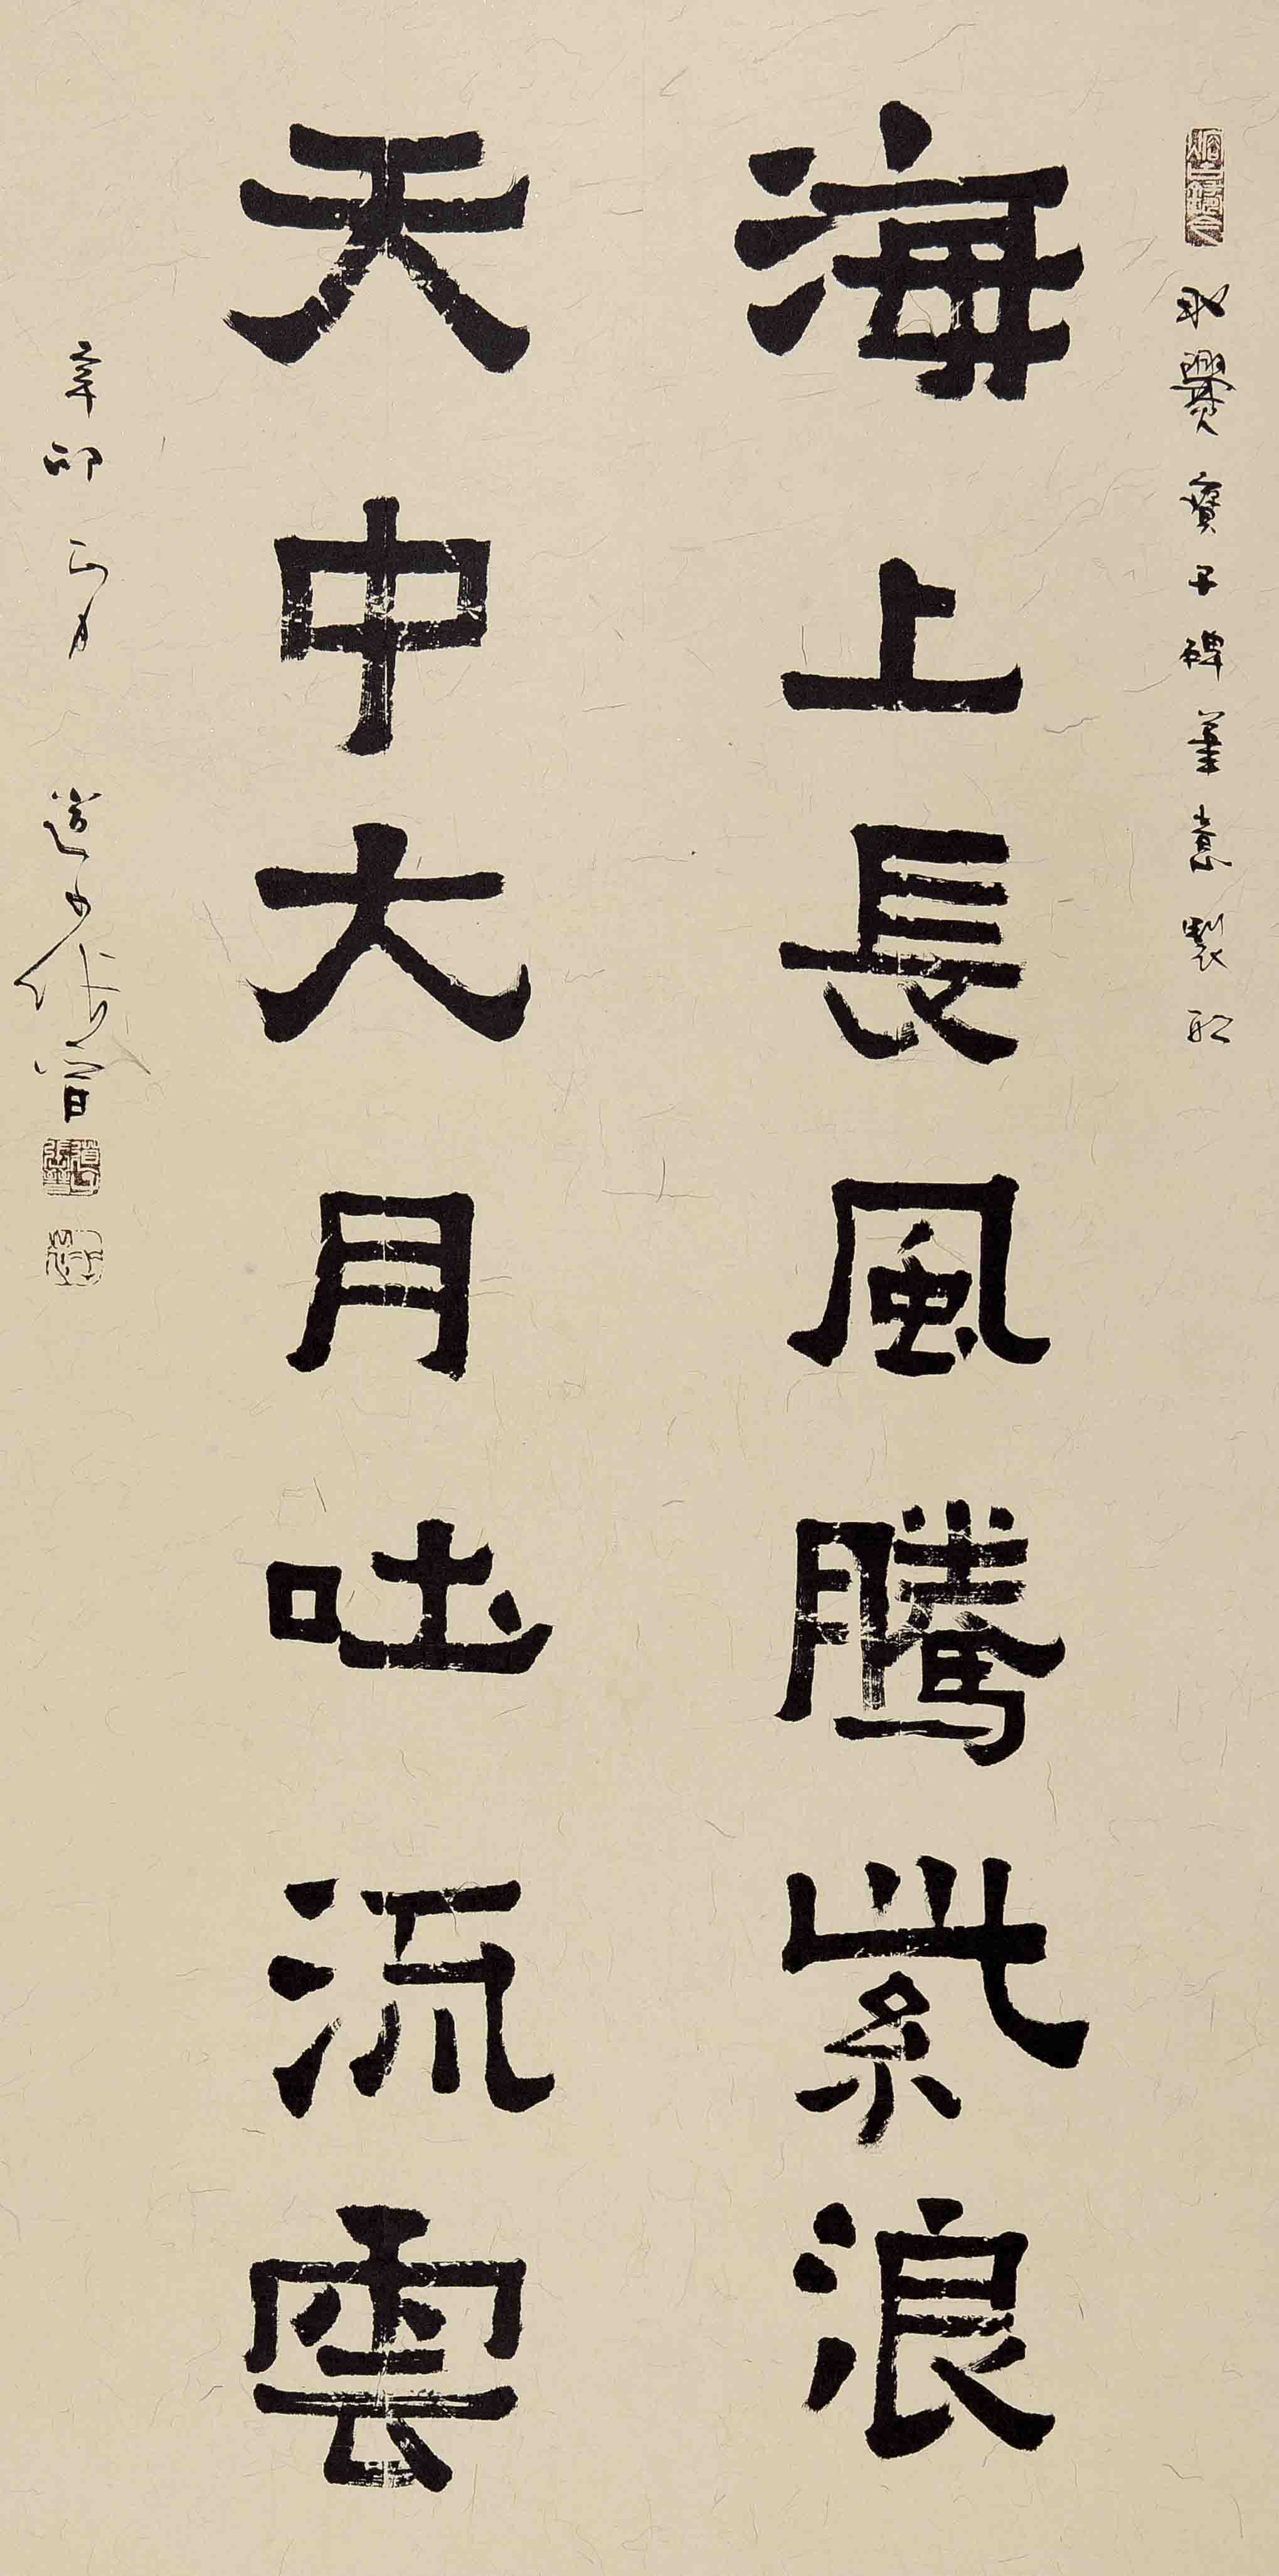 取爨寶子碑筆意製聯
海上長風騰紫浪
天中大月吐流雲
辛卯正月